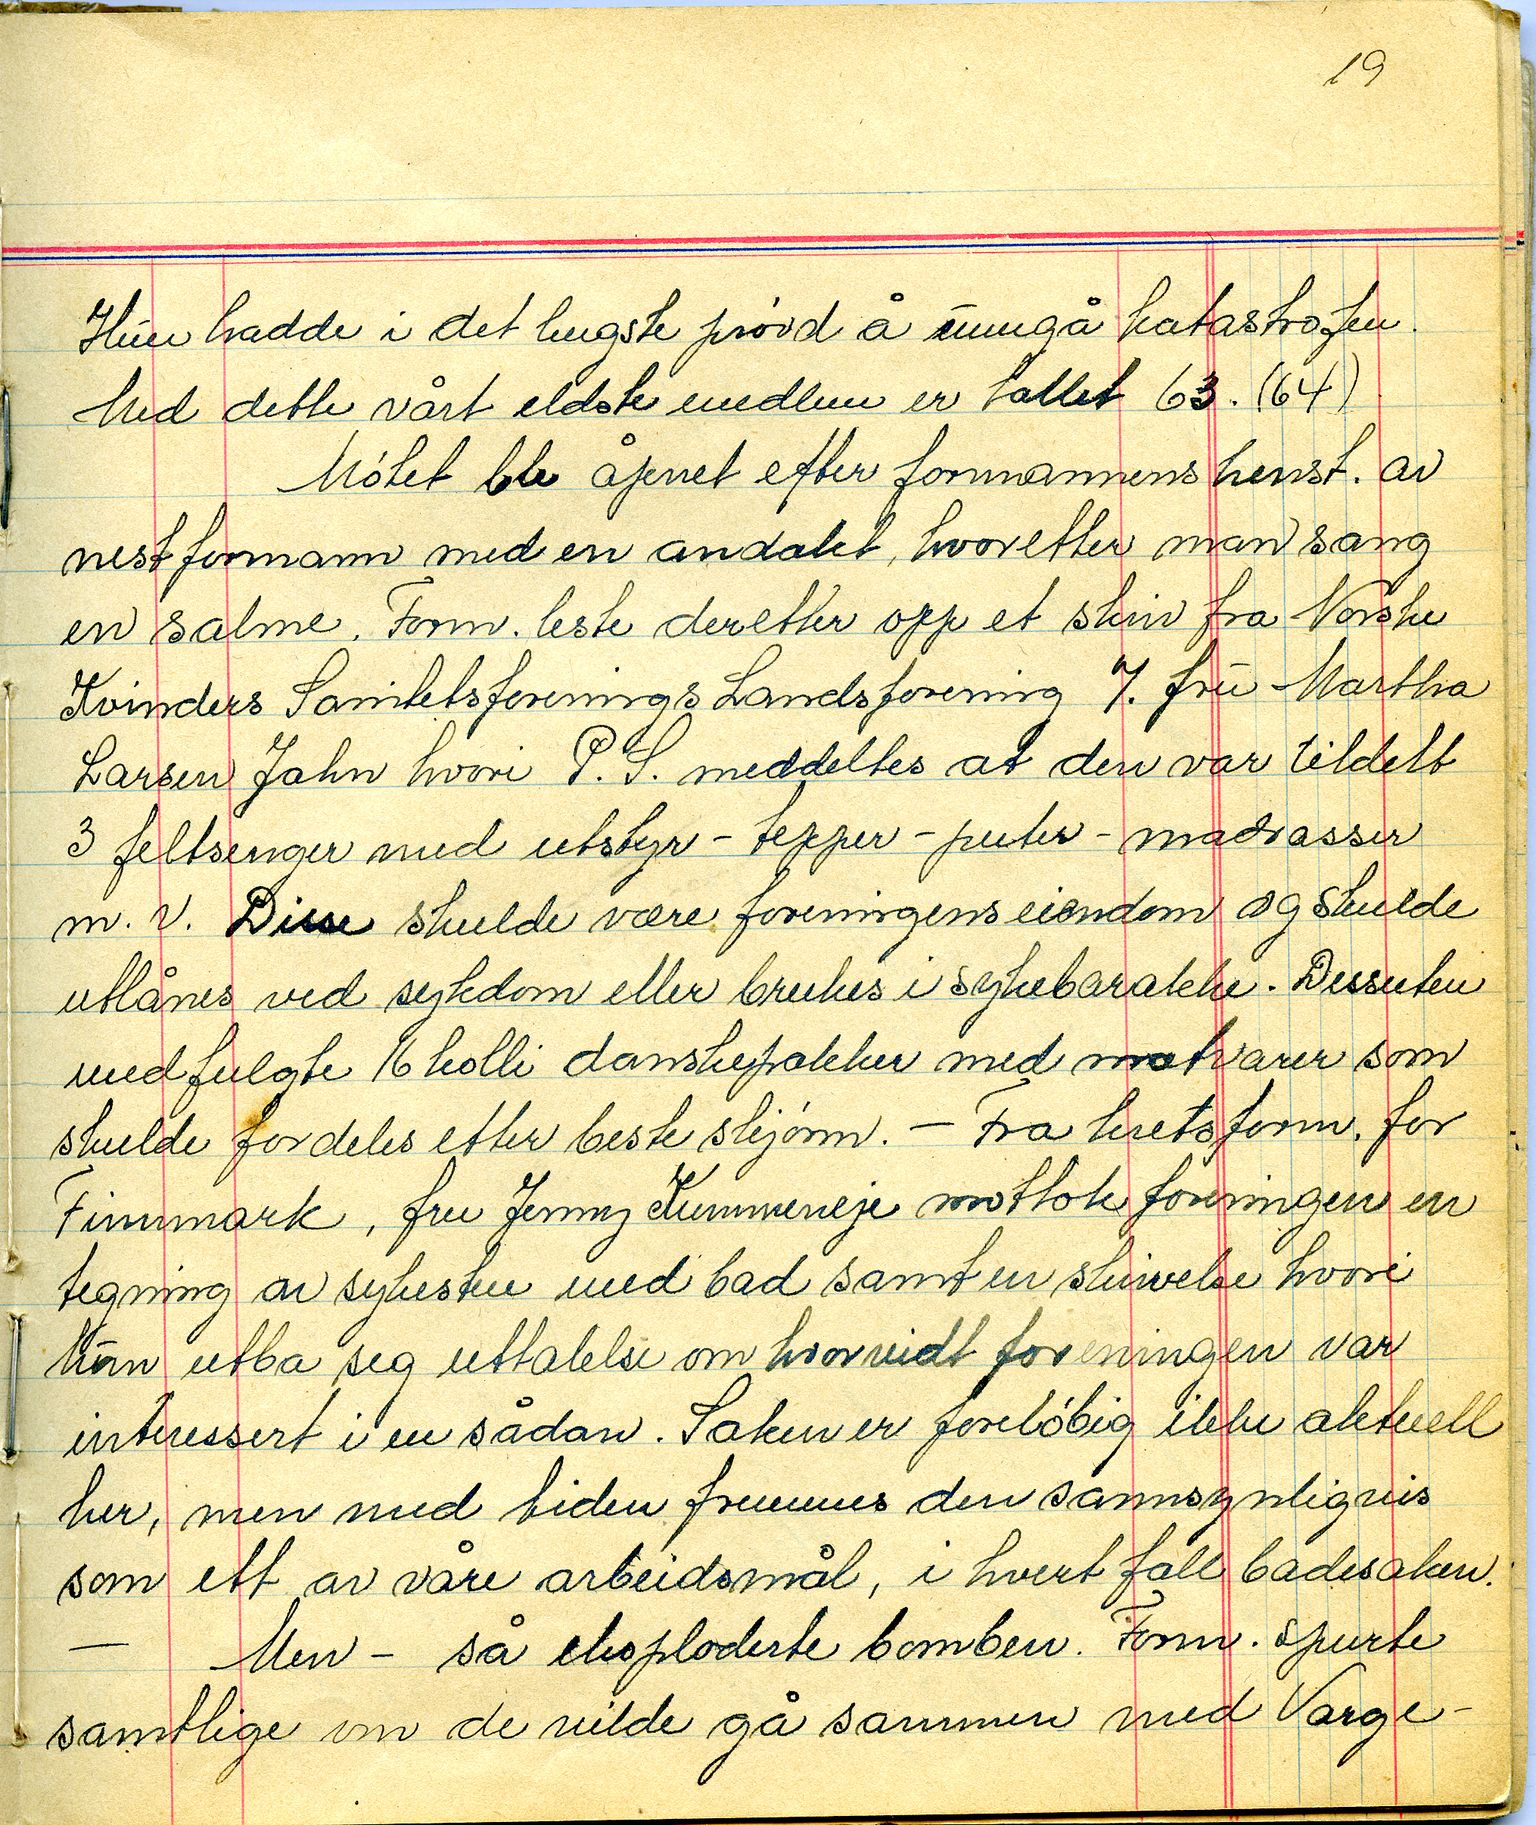 19
Hun hadde i det lengste prövd å unngå katastrofen.
Med dette vårt eldste medlem er tallet 63. (64)
Mötet ble åpnet efter formannens henst. av
nestformann med en andakt, hvoretter man sang
en salme. Form. leste deretter opp et skriv fra Norske
Kvinders Sanitetsforenings Landsforening v. fru Martha
Larsen Jahn hvori P. S. meddeltes at den var tildelt
3 feltsenger med utstyr - tepper - puter - madrasser
m. v. Disse skulde være foreningens eiendom og skulde
utlånes ved sykdom eller brukes i sykebarakke. Dessuten
medfulgte 16 kolli danskepakker med matvarer som
skulde fordeles etter beste skjönn. - Fra kretsform. for
Finnmark, fru Jenny Kummeneje mottok foreningen en
tegning av sykestue med bad samt en skrivelse hvori
hun utba seg uttalelse om hvorvidt foreningen var
interessert i en sådan. Saken er forelöbig ikke aktuell
her, men med tiden fremmes den sannsynligvis
som ett av våre arbeidsmål, i hvert fall badesaken.
- Men - så eksploderte bomben. Form. spurte
samtlige om de vilde gå sammen med Varge-